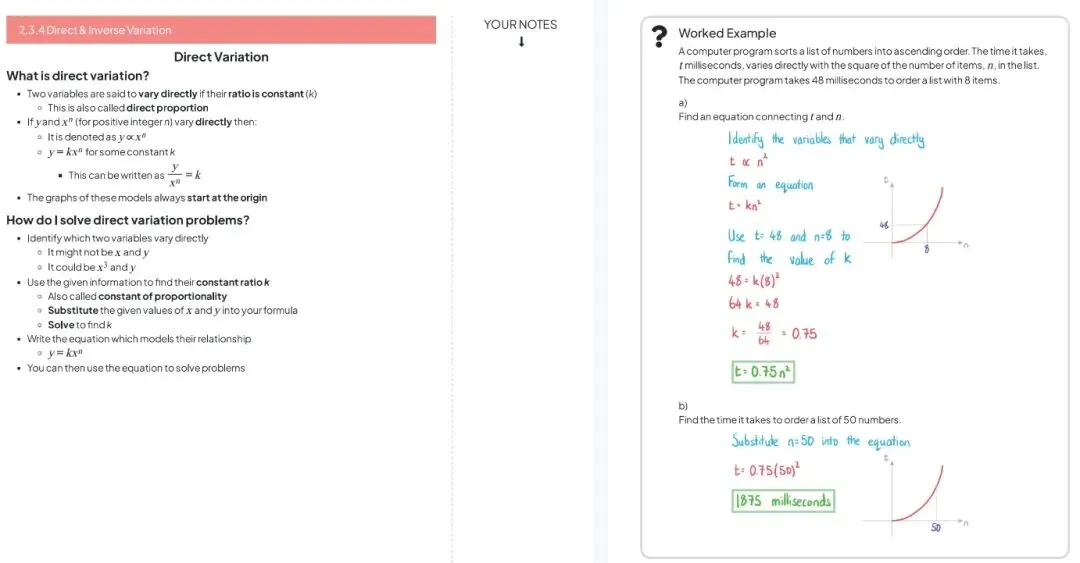 2.3.4 Direct & Inverse Variation
Direct Variation
What is direct variation?
• Two variables are said to vary directly if their ratio is constant (k)
◦ This is also called direct proportion
• If y and xⁿ (for positive integer n) vary directly then:
◦ It is denoted as y ∝ xⁿ
◦ y = kxⁿ for some constant k
▪ This can be written as y/xⁿ = k
• The graphs of these models always start at the origin
How do I solve direct variation problems?
• Identify which two variables vary directly
◦ It might not be x and y
◦ It could be x³ and y
• Use the given information to find their constant ratio k
◦ Also called constant of proportionality
◦ Substitute the given values of x and y into your formula
◦ Solve to find k
• Write the equation which models their relationship
◦ y = kxⁿ
• You can then use the equation to solve problems
YOUR NOTES
↓
? Worked Example
A computer program sorts a list of numbers into ascending order. The time it takes,
t milliseconds, varies directly with the square of the number of items, n, in the list.
The computer program takes 48 milliseconds to order a list with 8 items.
a)
Find an equation connecting t and n.
Identify the variables that vary directly
t ∝ n²
Form an equation
t = kn²
Use t = 48 and n = 8 to
find the value of k
48 = k(8)²
64 k = 48
k = 48/64 = 0.75
t = 0.75n²
t
48
8
n
b)
Find the time it takes to order a list of 50 numbers.
Substitute n = 50 into the equation
t = 0.75(50)²
1875 milliseconds
t
50
n